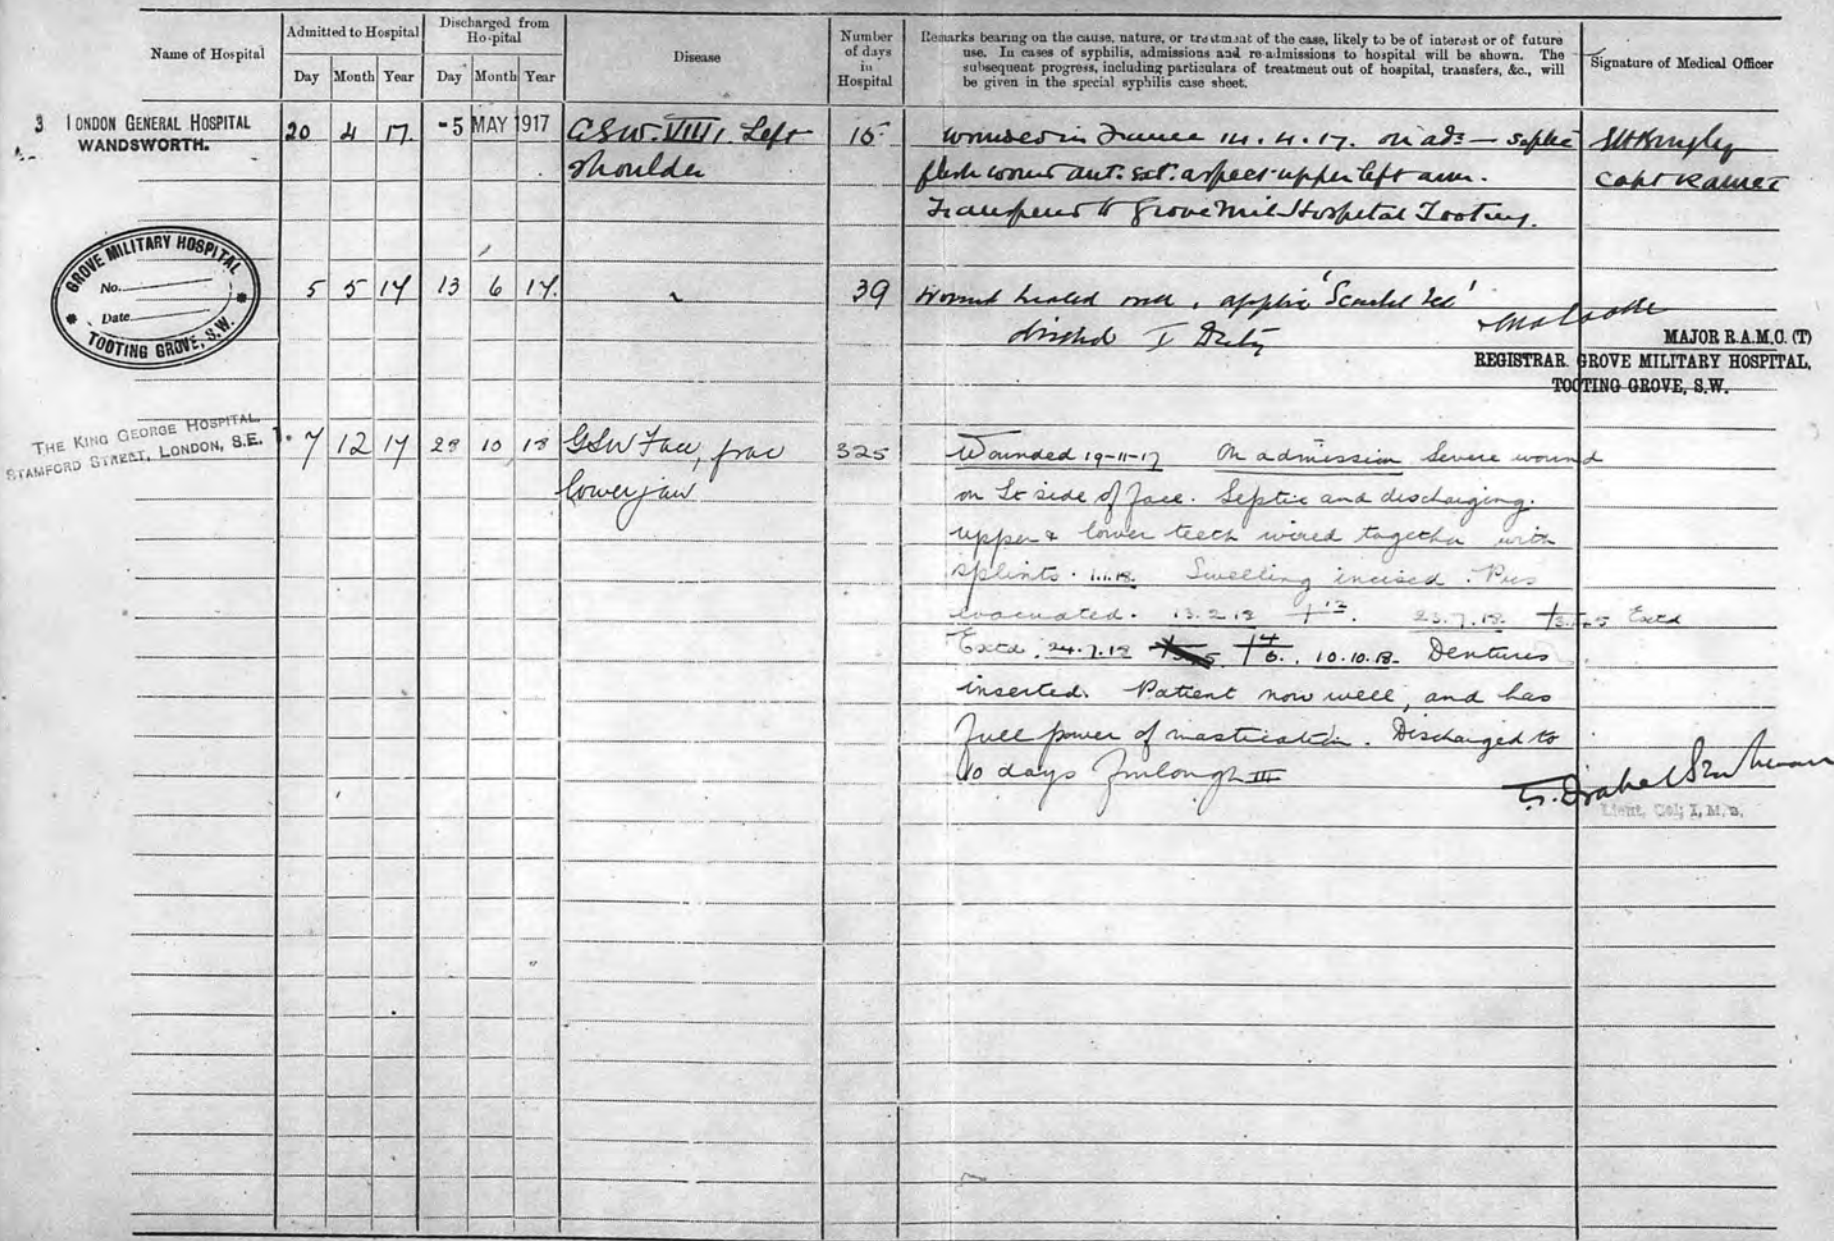 Name of Hospital
Admitted to Hospital
Day Month Year
Discharged from Ho-pital
Day Month Year
Disease
Number of days in Hospital
Remarks bearing on the cause, nature, or treatment of the case, likely to be of interest or of future
use. In cases of syphilis, admissions and re-admissions to hospital will be shown. The
subsequent progress, including particulars of treatment out of hospital, transfers, &c., will
be given in the special syphilis case sheet.
Signature of Medical Officer
3 LONDON GENERAL HOSPITAL
WANDSWORTH.
20 4 17. -5 MAY 1917 GSW. VIII1. Left 16 wounded in France 14.4.17. on ads — septic
shoulder flesh wound ant. ext. aspect upper left arm. Capt RAMC T
Transferred to Grove Mil Hospital Tooting.
GROVE MILITARY HOSPITAL
No.
Date
TOOTING GROVE, S.W.
5 5 17 13 6 17. 39 Wound healed over, 'Scarlet Red'
Duty
MAJOR R.A.M.C. (T)
REGISTRAR GROVE MILITARY HOSPITAL,
TOOTING GROVE, S.W.
THE KING GEORGE HOSPITAL,
STAMFORD STREET, LONDON, S.E. 1.
7 12 17 28 10 18 GSW Face, frac 325 Wounded 19-11-17 On admission Severe wound
lower jaw on Lt side of face. Septic and discharging.
upper & lower teeth wired together with
splints. 1.1.18. Swelling incised. Pus
evacuated. 13.2.18 23.7.18. Extd
Extd. 24.7.18 10.10.18. Dentures
inserted. Patient now well, and has
full power of mastication. Discharged to
10 days Furlough III
Lieut. Col; I.M.S.